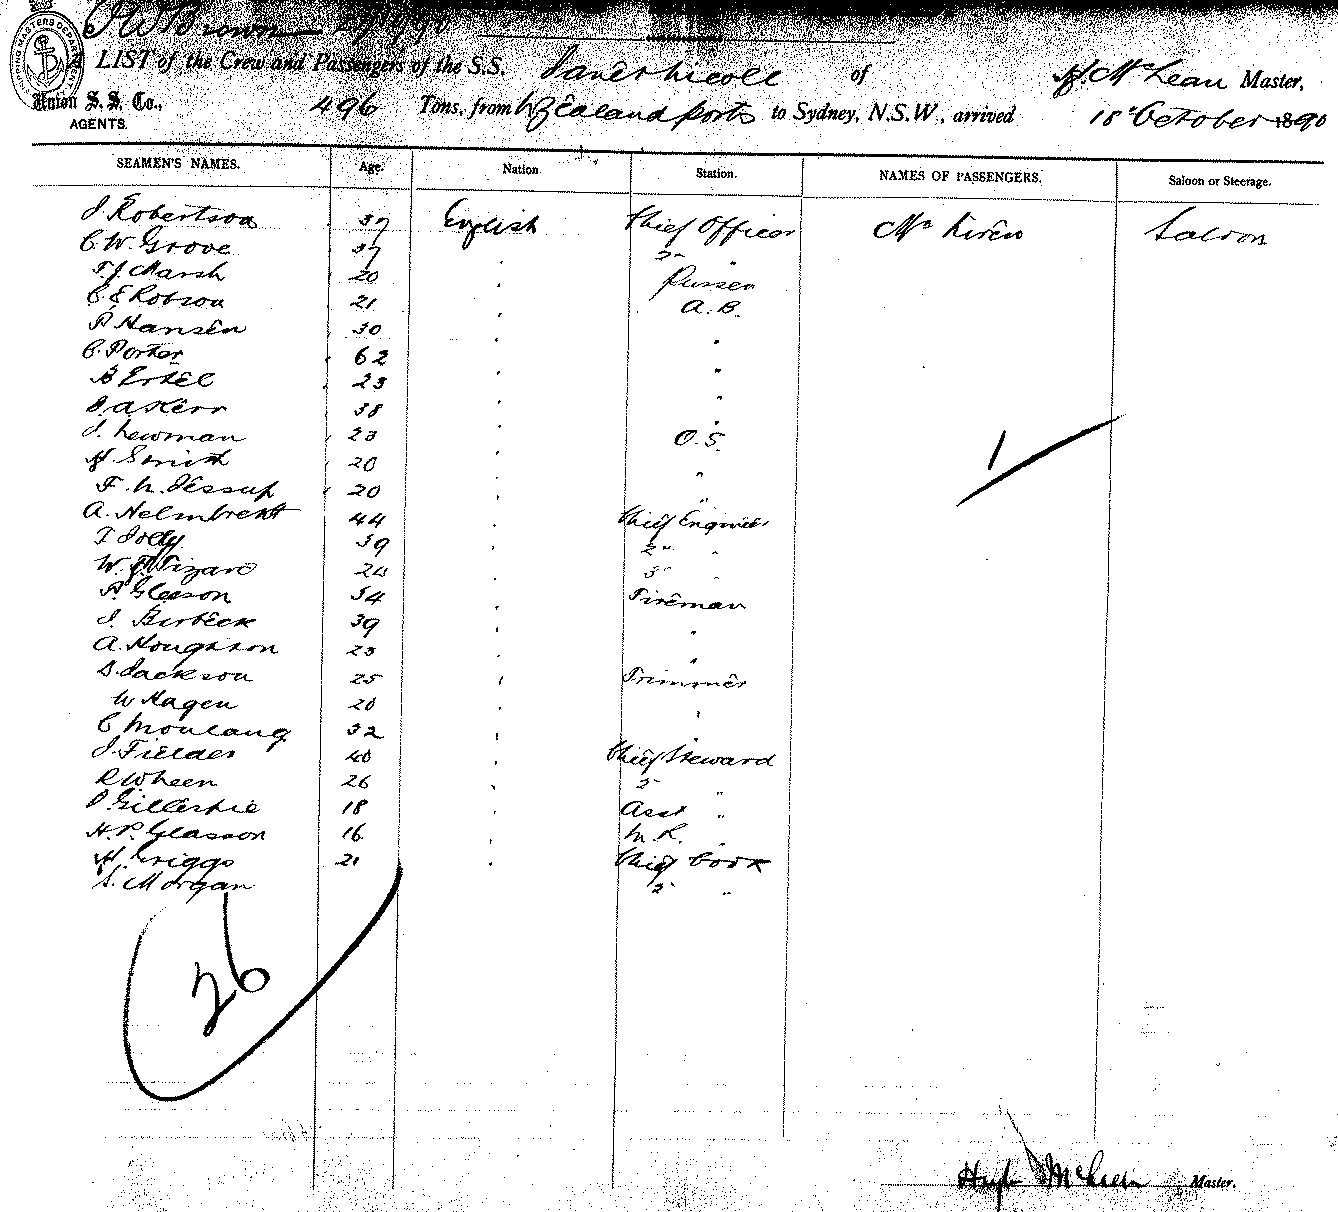 P W Brown
LIST of the Crew and Passengers of the S.S. Janet Nicoll of H. McLean Master,
Union S. S. Co., 496 Tons, from N Zealand Ports to Sydney, N.S.W., arrived 18 October 1890
AGENTS.
SEAMEN'S NAMES. Age. Nation Station. NAMES OF PASSENGERS. Saloon or Steerage.
J. Robertson 37 English Chief Officer Mr Kiren Saloon
C. W. Grove 37 " 2" "
T. J. Marsh 20 " Purser
C. E Robson 21 " A.B.
P Hansen 30 " "
C. Porter 62 " "
B Ertel 23 " "
D. A Kerr 38 " "
J. Newman 23 " O.S.
H. Smith 20 " "
F. N. Jessup 20 " "
A. Helmbrecht 44 " Chief Engineer
T Jolly 39 " 2" "
W. Wizard 3" "
P. Gleeson 34 " Fireman
J. Birbeck 39 " "
A. Houghson 23 " "
D. Jackson 25 " Trimmer
W Hagen 20 " "
C Moulang 32 " "
J. Fielder 40 " Chief Steward
R Wheen 26 " 2" "
P Gillespie 18 " Asst "
H. P. Glasson 16 " M. R. "
H. Griggs 21 " Chief Cook
S. Morgan 2" "
1
26
Hugh McLean Master.